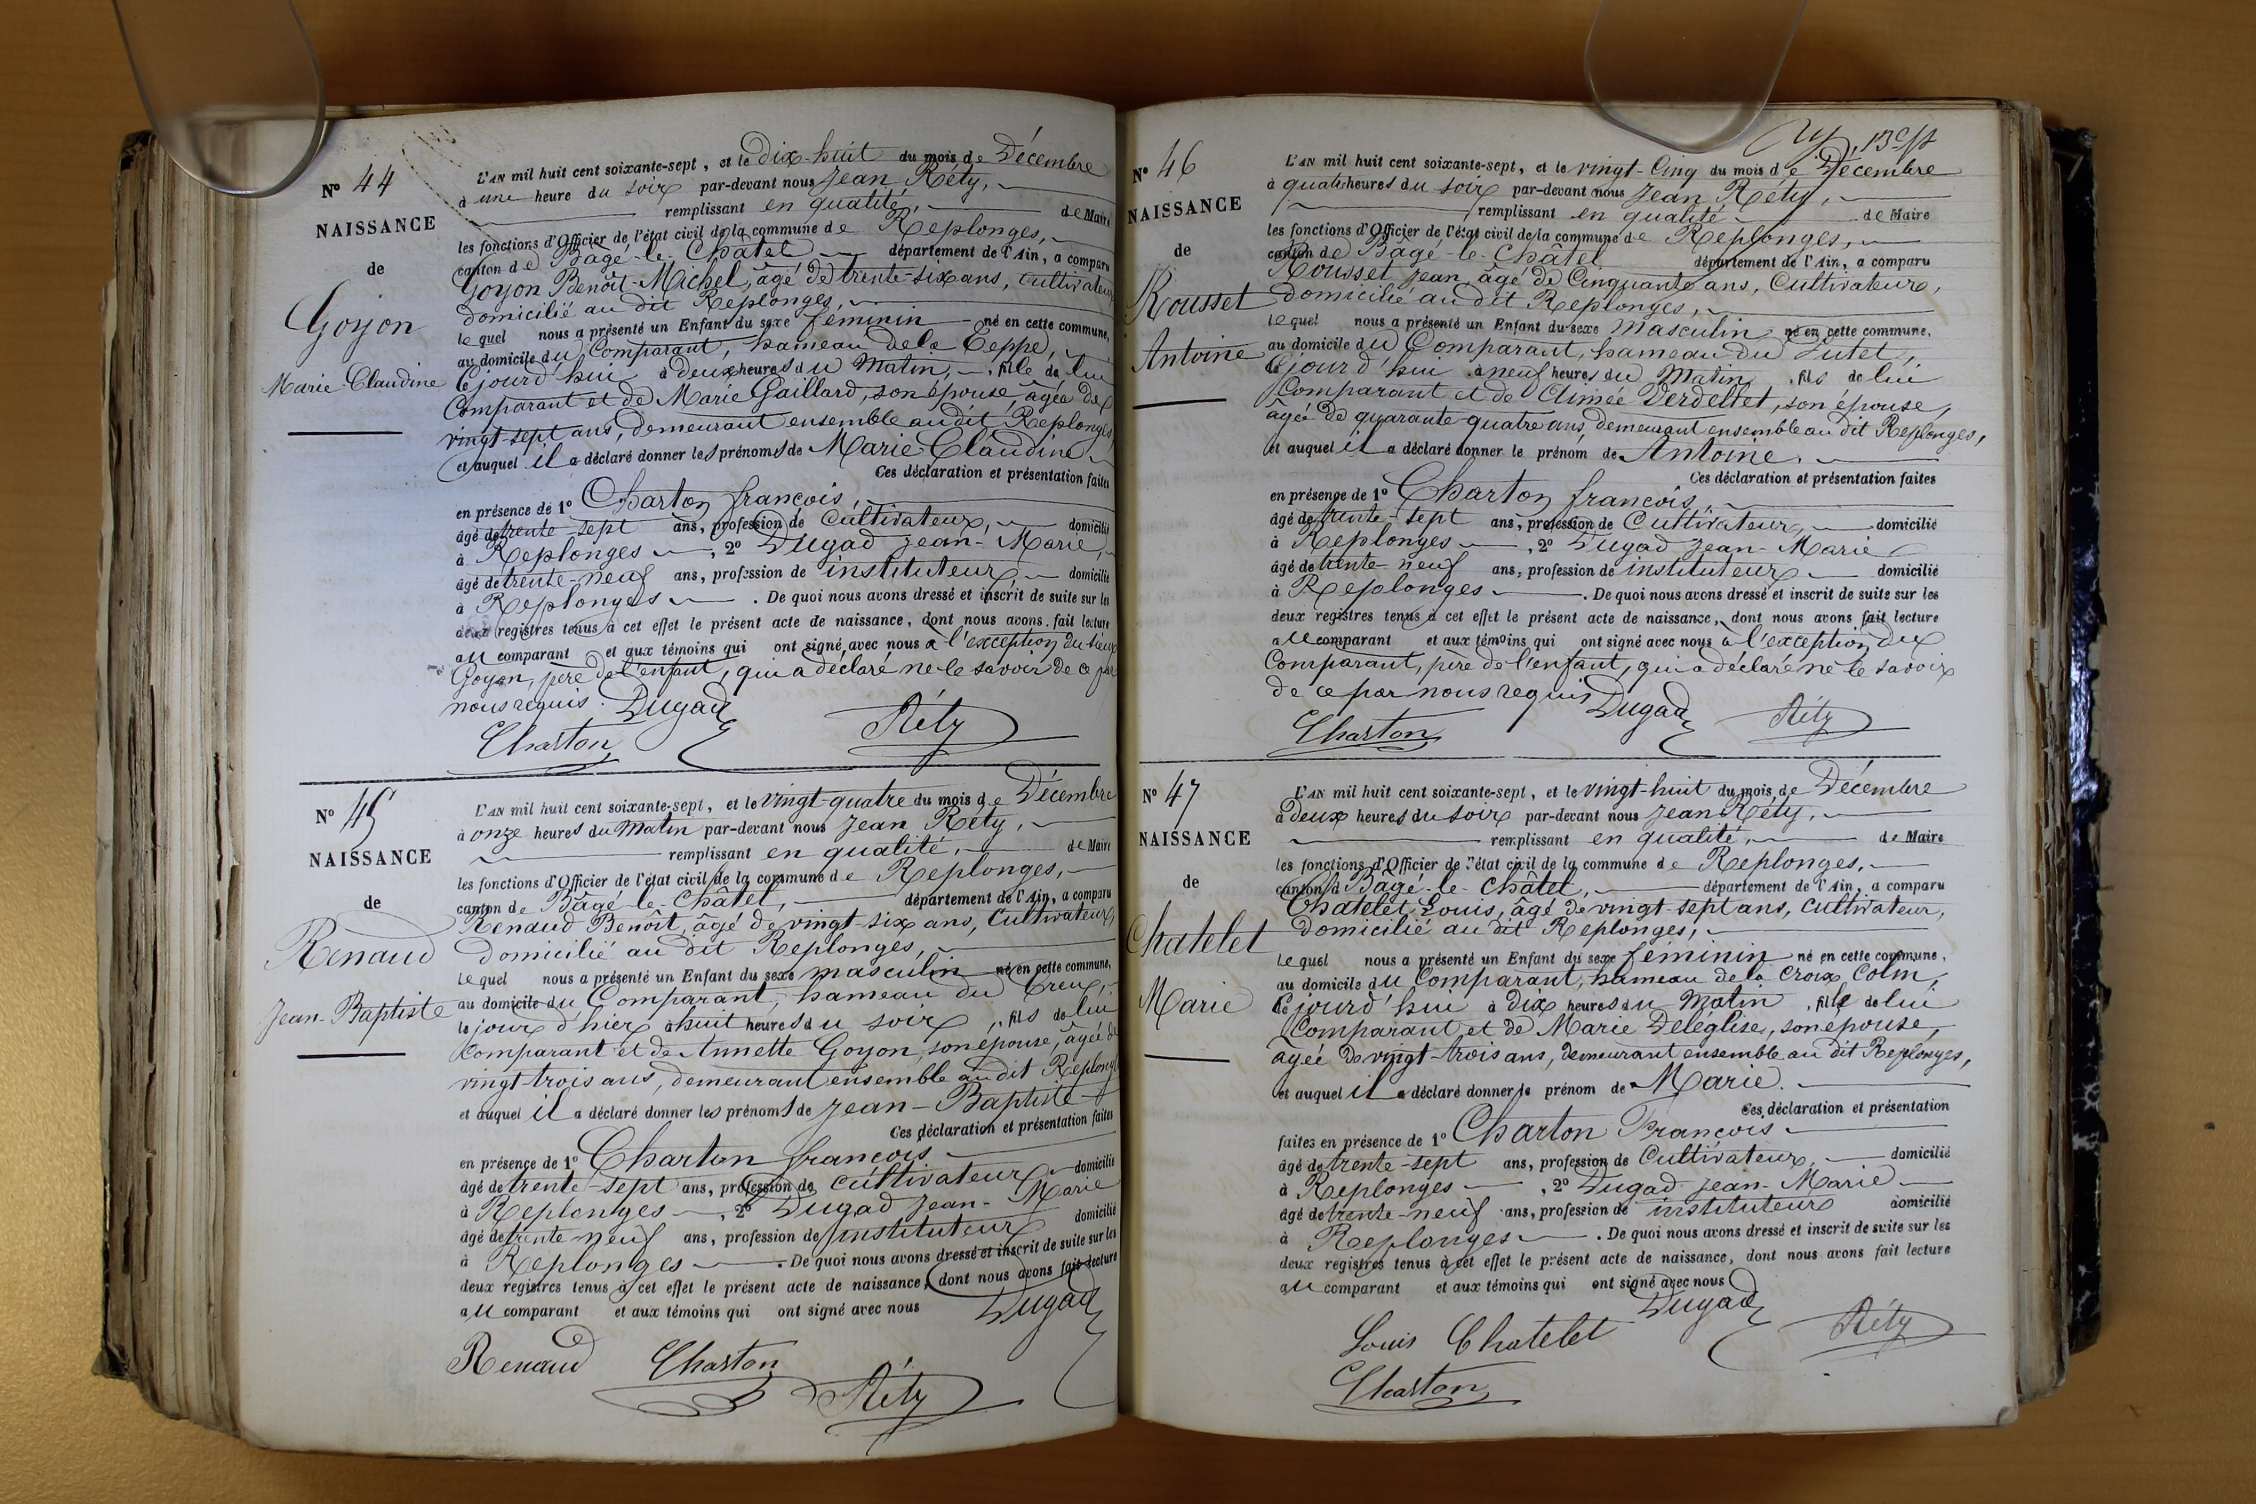 N° 44
NAISSANCE
de
Goyon
Marie-Claudine
L'AN mil huit cent soixante-sept, et le Dix-huit du mois de Décembre
à une heure du soir par-devant nous Jean Réty,
remplissant en qualité, de Maire
les fonctions d'Officier de l'état civil de la commune de Replonges,
canton de Bâgé-le-Châtel département de l'Ain, a comparu
Goyon Benoît-Michel, âgé de trente-six ans, cultivateur
domicilié au dit Replonges,
lequel nous a présenté un Enfant du sexe féminin né en cette commune,
au domicile du Comparant, hameau de la Ceppe,
Ce jourd'hui à deux heures du Matin, fille de lui
Comparant et de Marie Gaillard, son épouse, âgée de
vingt-sept ans, demeurant ensemble au dit Replonges
et auquel il a déclaré donner les prénoms de Marie-Claudine
Ces déclaration et présentation faites
en présence de 1° Charton françois,
âgé de trente-sept ans, profession de cultivateur, domicilié
à Replonges, 2° Dugad Jean-Marie,
âgé de trente-neuf ans, profession de instituteur, domicilié
à Replonges. De quoi nous avons dressé et inscrit de suite sur les
deux registres tenus à cet effet le présent acte de naissance, dont nous avons fait lecture
au comparant et aux témoins qui ont signé avec nous à l'exception du sieur
Goyon, père de l'enfant, qui a déclaré ne le savoir de ce par
nous requis. Dugad
Charton Réty
N° 45
NAISSANCE
de
Renaud
Jean-Baptiste
L'AN mil huit cent soixante-sept, et le vingt-quatre du mois de Décembre
à onze heures du Matin par-devant nous Jean Réty,
remplissant en qualité, de Maire
les fonctions d'Officier de l'état civil de la commune de Replonges,
canton de Bâgé-le-Châtel, département de l'Ain, a comparu
Renaud Benoît, âgé de vingt-six ans, Cultivateur,
domicilié au dit Replonges,
lequel nous a présenté un Enfant du sexe masculin né en cette commune,
au domicile du Comparant, hameau du Creux,
le jour d'hier à huit heures du soir, fils de lui
comparant et de Annette Goyon, son épouse, âgée de
vingt-trois ans, demeurant ensemble au dit Replonges
et auquel il a déclaré donner les prénoms de Jean-Baptiste
Ces déclaration et présentation faites
en présence de 1° Charton françois
âgé de trente-sept ans, profession de cultivateur domicilié
à Replonges, 2° Dugad Jean-Marie
âgé de trente neuf ans, profession de instituteur domicilié
à Replonges. De quoi nous avons dressé et inscrit de suite sur les
deux registres tenus à cet effet le présent acte de naissance, dont nous avons fait lecture
au comparant et aux témoins qui ont signé avec nous Dugad
Renaud Charton
Réty
N° 46
NAISSANCE
de
Rousset
Antoine
13e
L'AN mil huit cent soixante-sept, et le vingt-Cinq du mois de Décembre
à quatre heures du soir par-devant nous Jean Réty,
remplissant en qualité de Maire
les fonctions d'Officier de l'état civil de la commune de Replonges,
canton de Bâgé-le-Châtel département de l'Ain, a comparu
Rousset Jean, âgé de Cinquante ans, Cultivateur,
domicilié au dit Replonges,
lequel nous a présenté un Enfant du sexe Masculin né en cette commune,
au domicile du Comparant, hameau du Jutet,
Ce jourd'hui à neuf heures du Matin, fils de lui
Comparant et de Aimée Verdellet, son épouse,
âgée de quarante quatre ans, demeurant ensemble au dit Replonges,
et auquel il a déclaré donner le prénom de Antoine.
Ces déclaration et présentation faites
en présence de 1° Charton françois,
âgé de trente-sept ans, profession de Cultivateur, domicilié
à Replonges, 2° Dugad Jean-Marie
âgé de trente-neuf ans, profession de instituteur domicilié
à Replonges. De quoi nous avons dressé et inscrit de suite sur les
deux registres tenus à cet effet le présent acte de naissance, dont nous avons fait lecture
au comparant et aux témoins qui ont signé avec nous à l'exception du
Comparant, père de l'enfant, qui a déclaré ne le savoir
de ce par nous requis Dugad Réty
Charton
N° 47
NAISSANCE
de
Chatelet
Marie
L'AN mil huit cent soixante-sept, et le vingt-huit du mois de Décembre
à deux heures du soir par-devant nous Jean Réty,
remplissant en qualité, de Maire
les fonctions d'Officier de l'état civil de la commune de Replonges,
canton d Bâgé-le-Châtel, département de l'Ain, a comparu
Chatelet Louis, âgé de vingt-sept ans, cultivateur,
domicilié au dit Replonges,
lequel nous a présenté un Enfant du sexe féminin né en cette commune,
au domicile du Comparant, hameau de la Croix Colin,
Ce jourd'hui à dix heures du Matin, fille de lui
Comparant et de Marie Deléglise, son épouse,
âgée de vingt-trois ans, demeurant ensemble au dit Replonges,
et auquel il a déclaré donner le prénom de Marie.
Ces déclaration et présentation
faites en présence de 1° Charton François
âgé de trente-sept ans, profession de Cultivateur, domicilié
à Replonges, 2° Dugad Jean-Marie
âgé de trente-neuf ans, profession de instituteur domicilié
à Replonges. De quoi nous avons dressé et inscrit de suite sur les
deux registres tenus à cet effet le présent acte de naissance, dont nous avons fait lecture
au comparant et aux témoins qui ont signé avec nous
Dugad
Louis Chatelet Réty
Charton